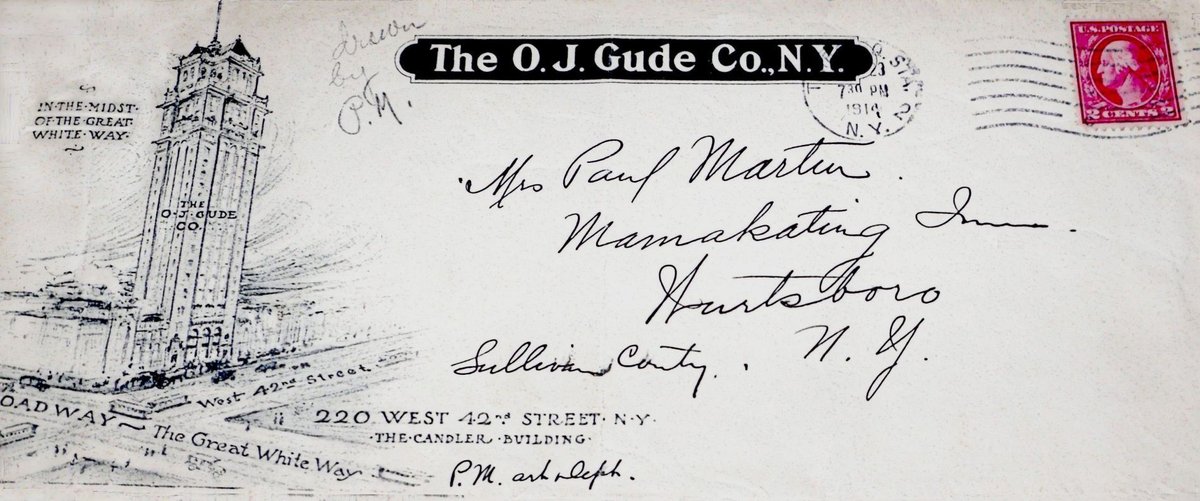 drawn
by
P.M.
IN·THE·MIDST·
OF·THE·GREAT·
WHITE·WAY·
THE
O·J·GUDE
CO.
West 42nd Street
OADWAY
The Great White Way
The O. J. Gude Co., N.Y.
STA
23
730 PM
1914
N.Y.
2
U.S. POSTAGE
2 CENTS 2
Mrs Paul Martin.
Mamakating Inn.
Wurtsboro
N. Y.
Sullivan Conty.
220 WEST 42ND STREET· N·Y·
·THE CANDLER· BUILDING·
P.M. art Dept.